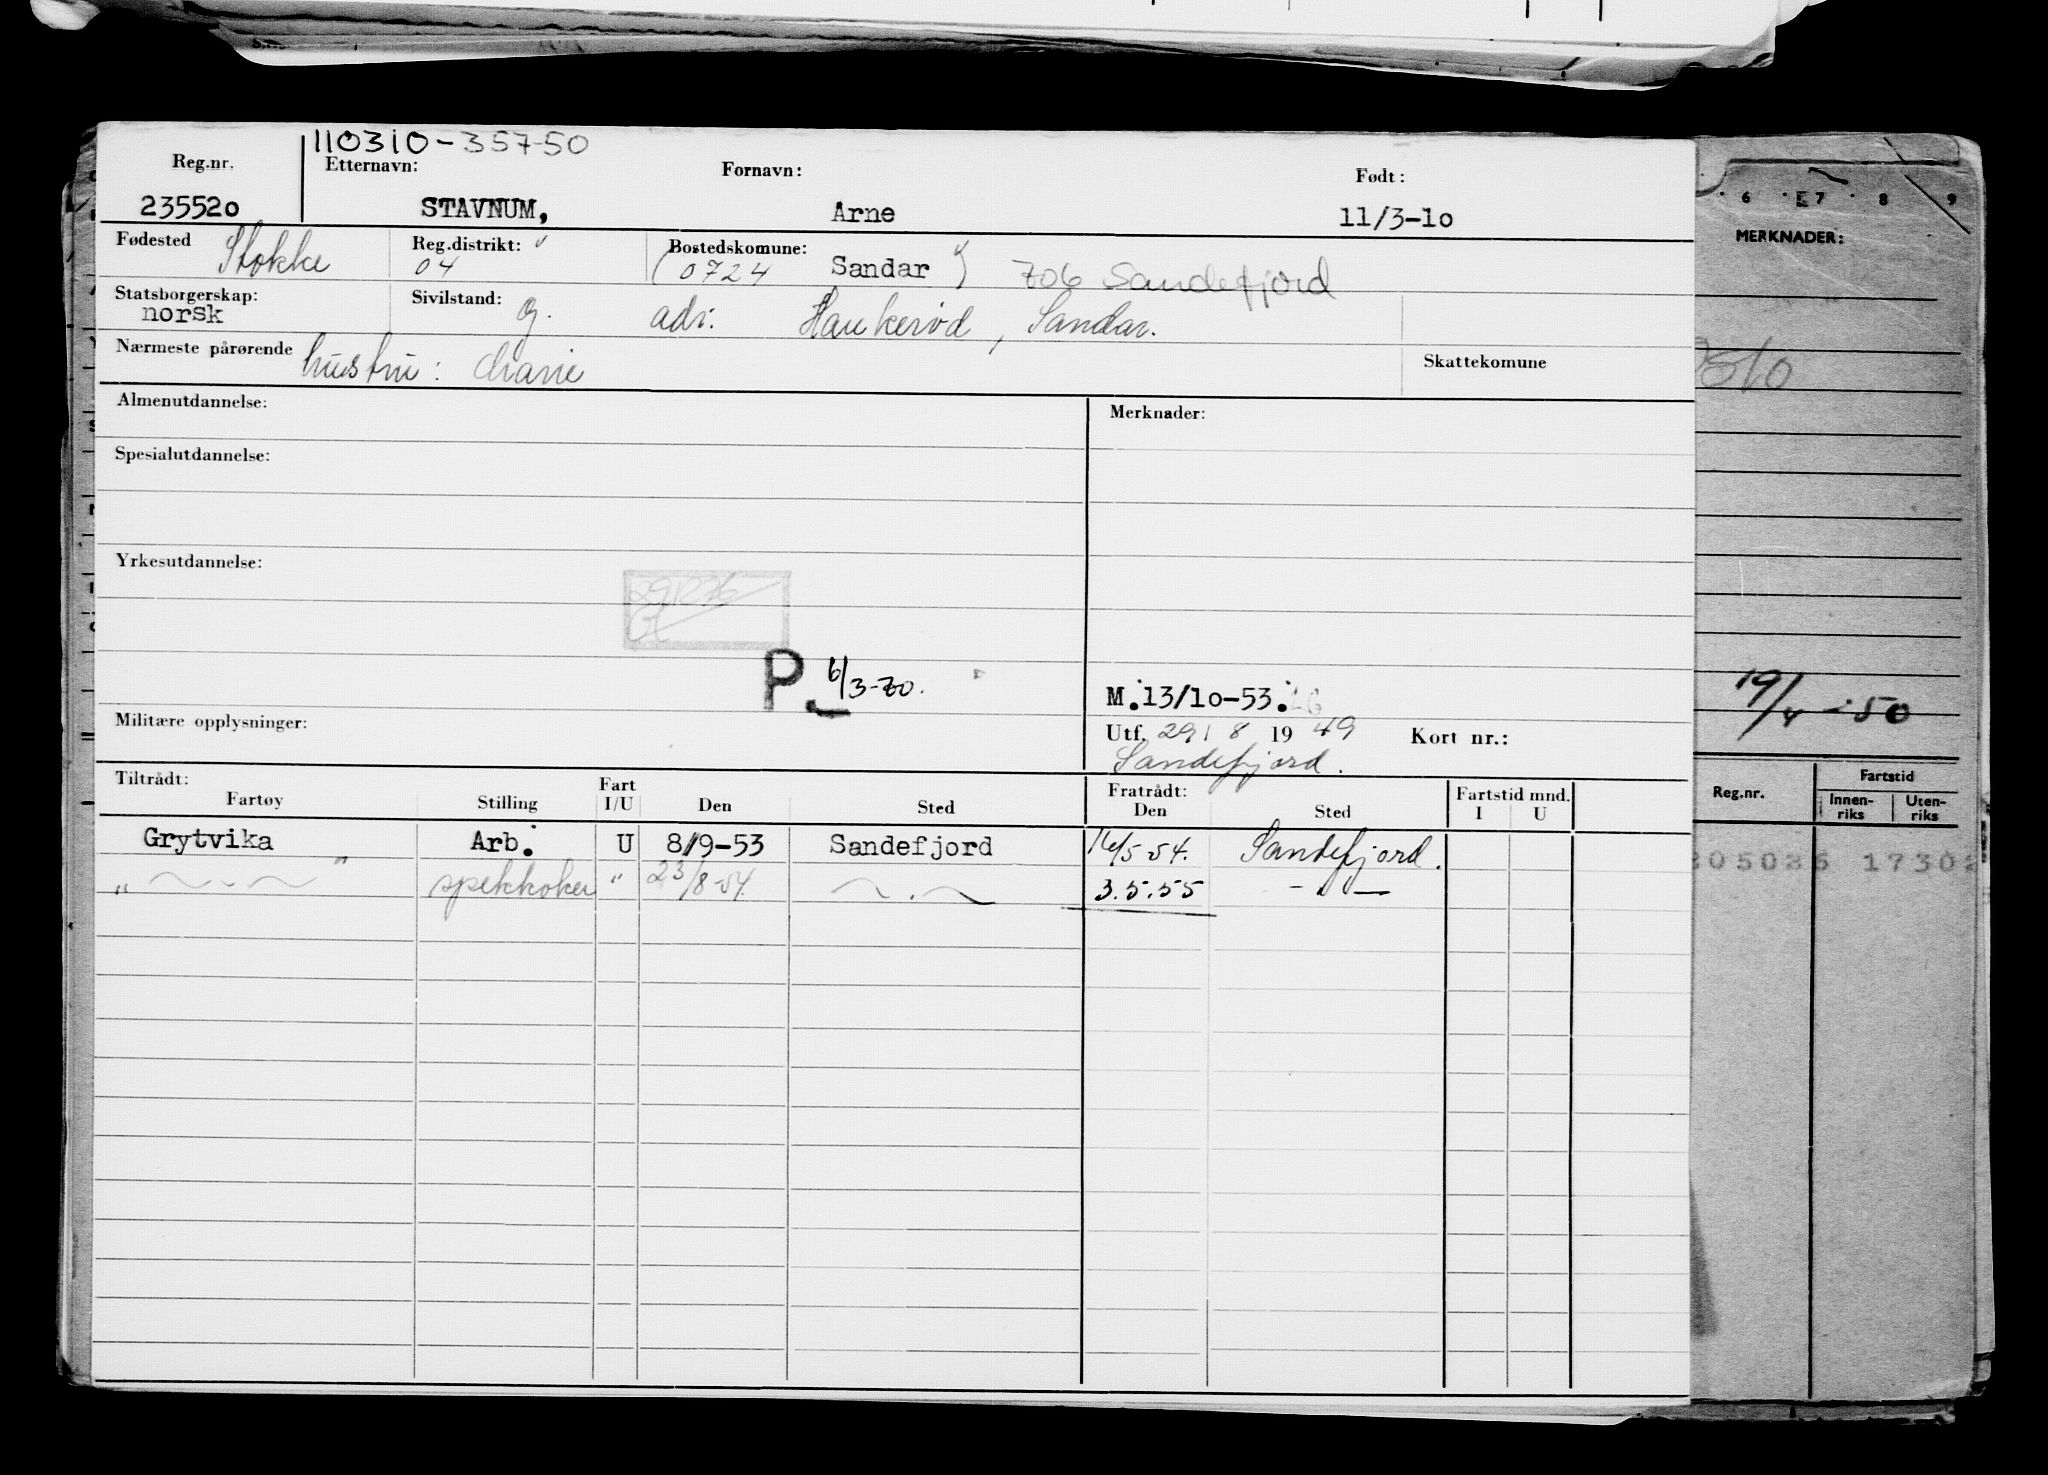 110310-35750
Reg.nr. Etternavn: Fornavn: Født:
235520 STAVNUM, Arne 11/3-10
Fødested Stokke Reg.distrikt: 04 Bostedskomune: (0724 Sandar) 706 Sandefjord
Statsborgerskap: norsk Sivilstand: g. adr: Haukerød, Sandar.
Nærmeste pårørende hustru: Marie Skattekomune
Almenutdannelse: Merknader:
Spesialutdannelse:
Yrkesutdannelse:
291276
P 6/3-70.
M.13/10-53.
Militære opplysninger: Utf. 29/8 1949 Kort nr.:
Sandefjord.
Tiltrådt: Fratrådt:
Fartøy Stilling Fart I/U Den Sted Den Sted Fartstid mnd. I U
Grytvika Arb. U 8/9-53 Sandefjord 16/5-54. Sandefjord.
" — " — spekkoker " 23/8-54. — . — 3.5.55 — " —
6 7 8 9
MERKNADER:
19/4-50
Reg.nr. Fartstid
Innen-riks Uten-riks
205026 17302